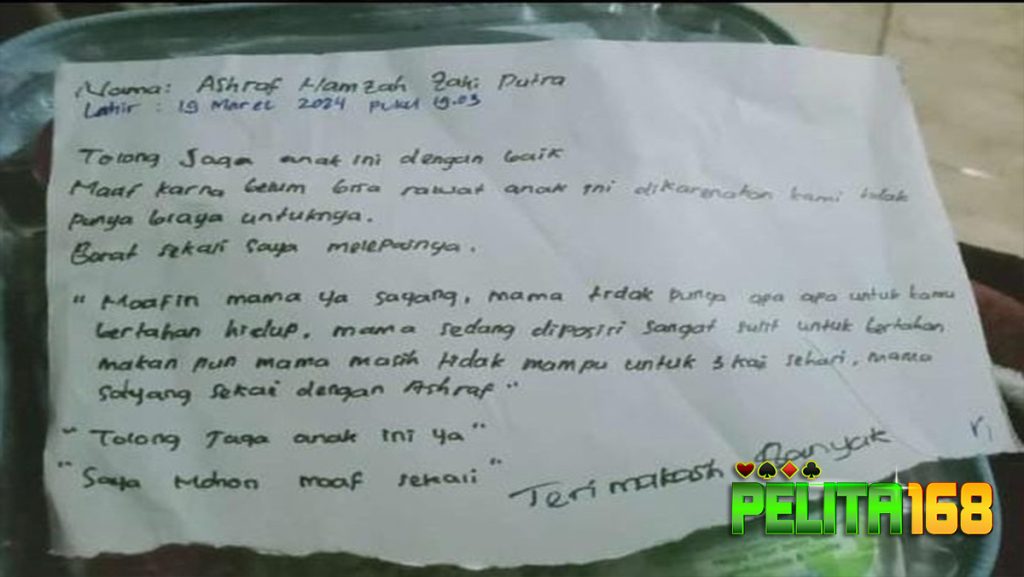 Nama: Ashraf Hamzah Zaki Putra
Lahir : 19 Maret 2024 pukul 19.03
Tolong Jaga anak ini dengan baik
Maaf karna belum bisa rawat anak ini dikarenakan kami tidak
punya biaya untuknya.
Berat sekali saya melepasnya.
"Maafin mama ya sayang, mama tidak punya apa apa untuk kamu
bertahan hidup. mama sedang diposisi sangat sulit untuk bertahan
makan pun mama masih tidak mampu untuk 3 kali sehari. mama
sayang sekali dengan Ashraf"
"Tolong Jaga anak ini ya"
"Saya Mohon maaf sekali"
Terimakasih Banyak
PELITA168